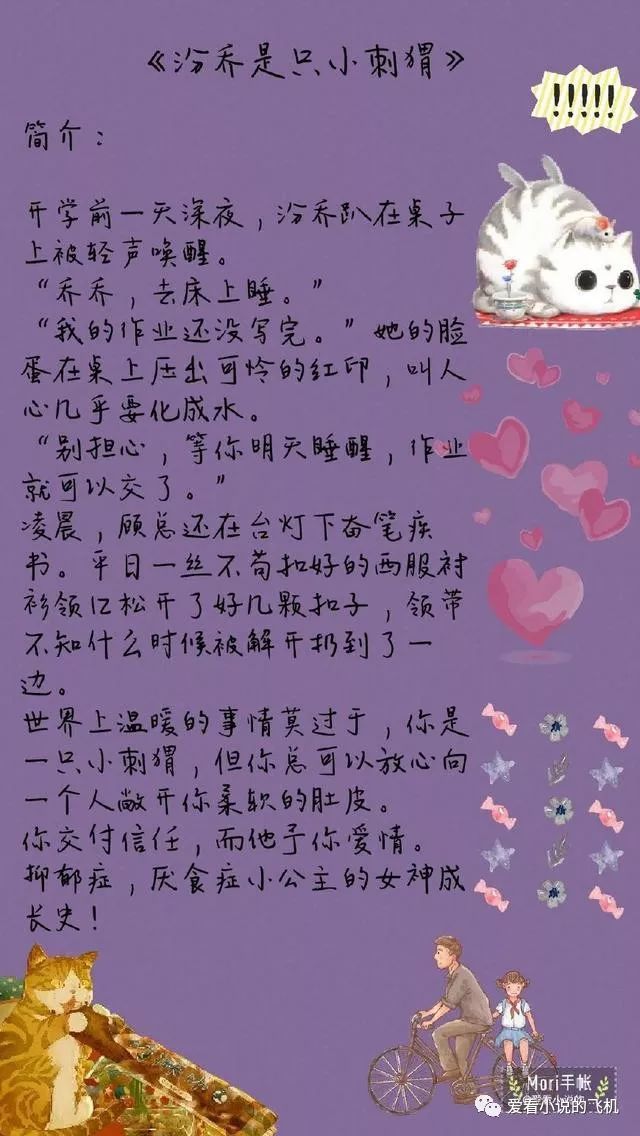 《汾乔是只小刺猬》
!!!!!
简介：
开学前一天深夜，汾乔趴在桌子
上被轻声唤醒。
“乔乔，去床上睡。”
“我的作业还没写完。”她的脸
蛋在桌上压出可怜的红印，叫人
心几乎要化成水。
“别担心，等你明天睡醒，作业
就可以交了。”
凌晨，顾总还在台灯下奋笔疾
书。平日一丝不苟扣好的西服衬
衫领口松开了好几颗扣子，领带
不知什么时候被解开扔到了一
边。
世界上温暖的事情莫过于，你是
一只小刺猬，但你总可以放心向
一个人敞开你柔软的肚皮。
你交付信任，而他予你爱情。
抑郁症，厌食症小公主的女神成
长史！
Mori手帐
爱看小说的飞机